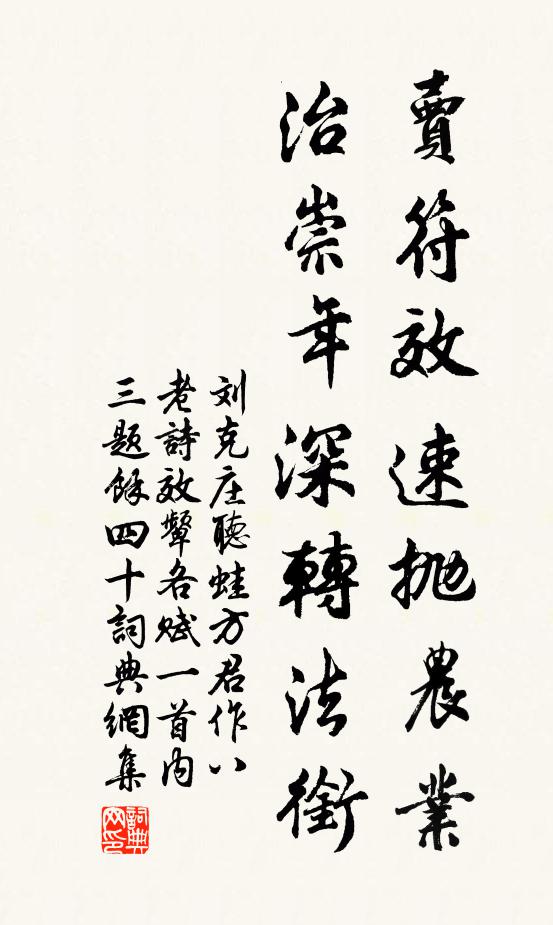 賣符效速抛農業
治崇年深轉法銜
刘克庄聽蛙方君作八
老詩效顰各賦一首内
三題餘四十詞典網集
詞典
网印